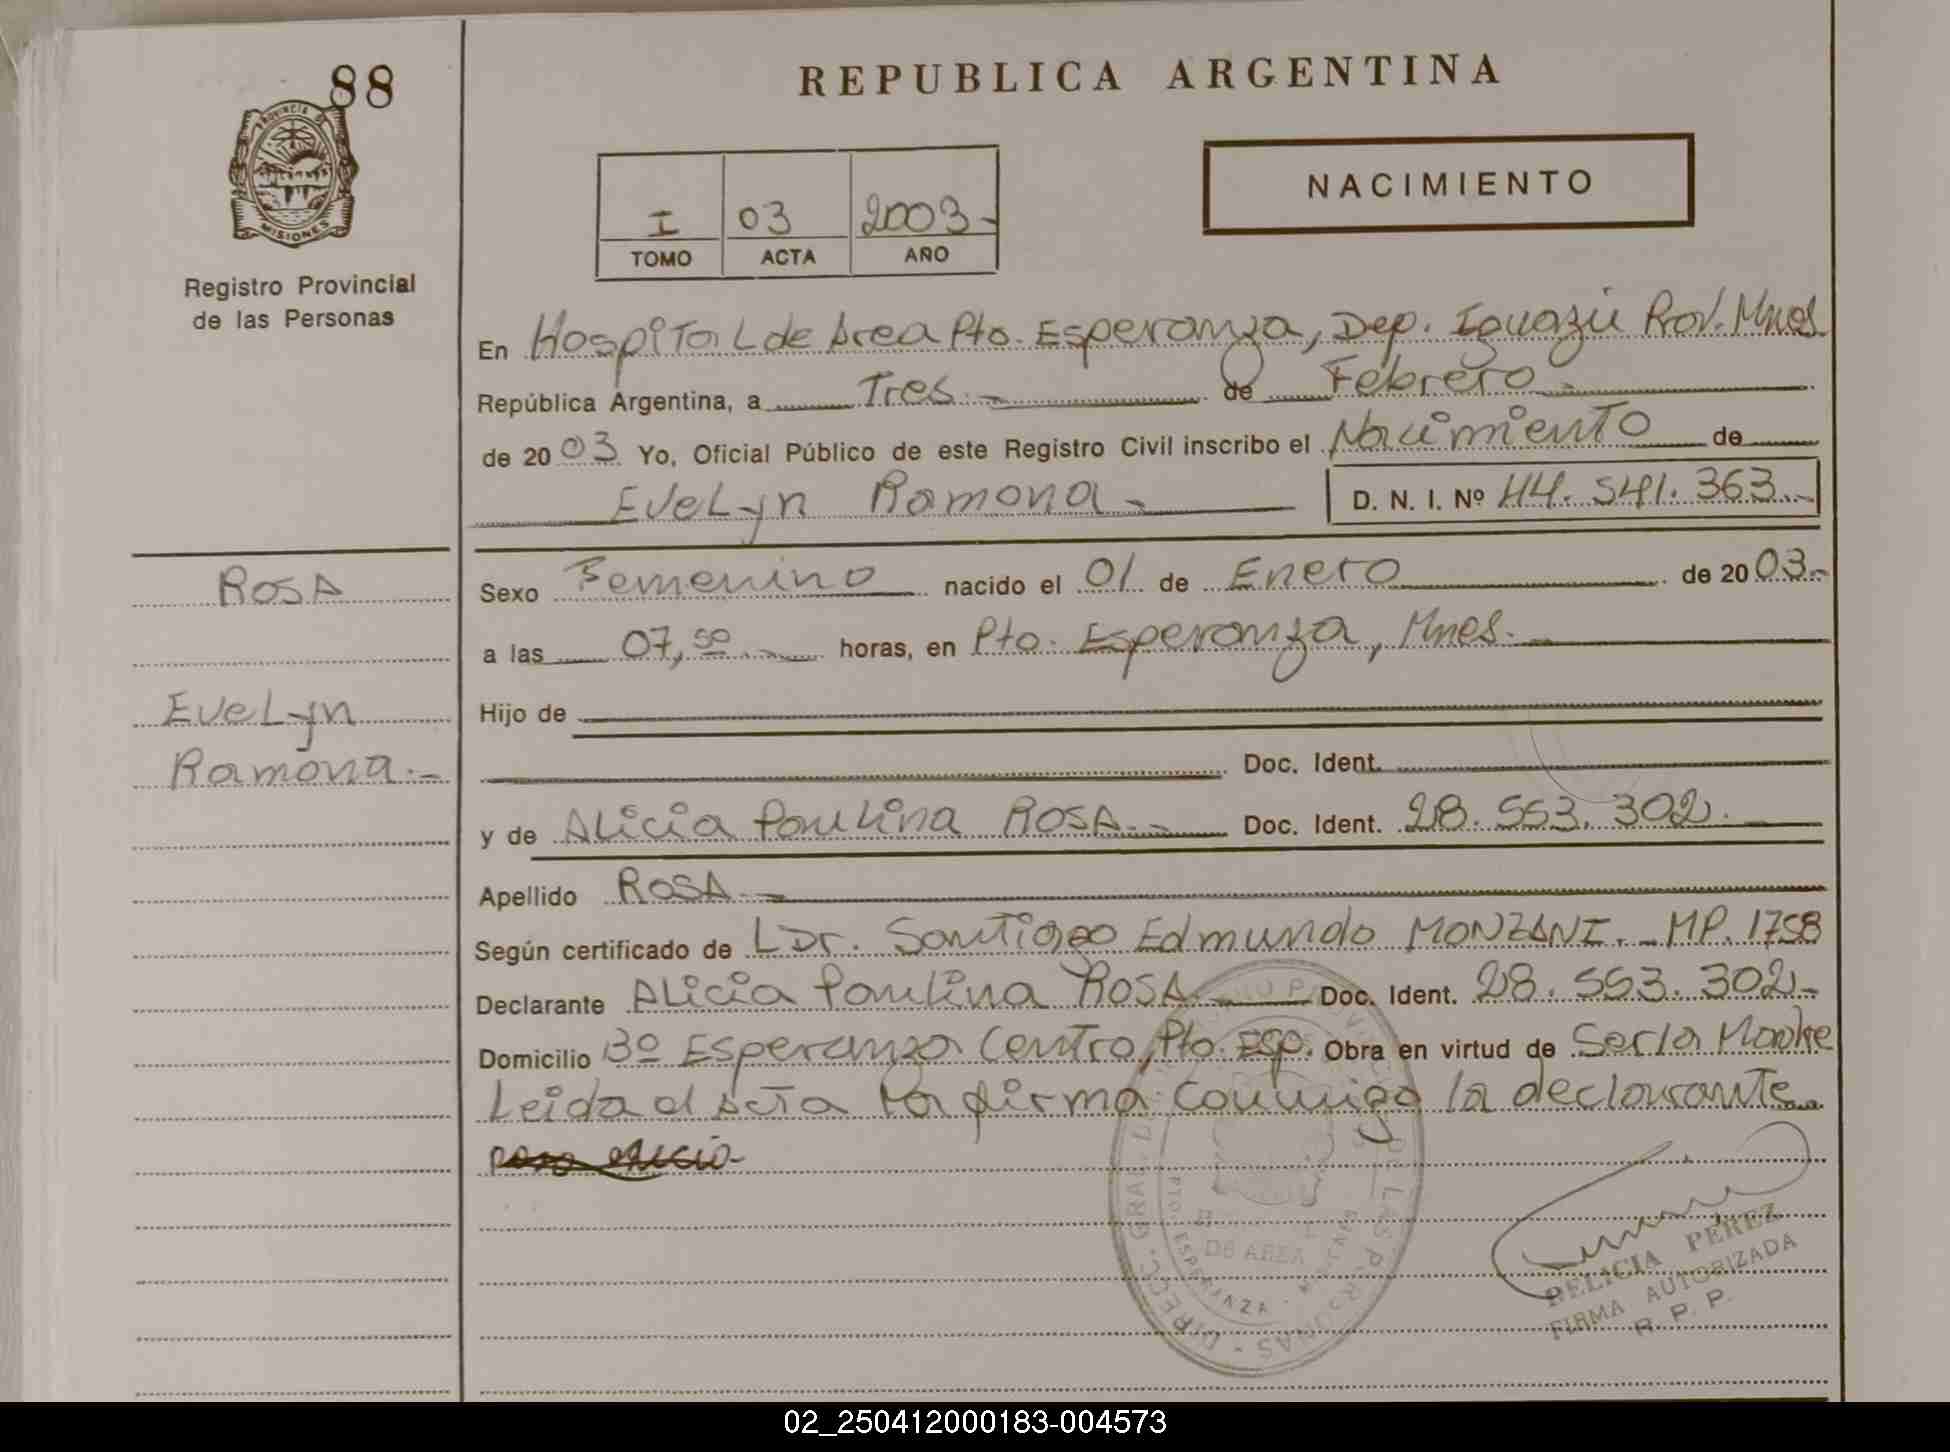 88
REPUBLICA ARGENTINA
PROVINCIA DE
MISIONES
Registro Provincial
de las Personas
I 03 2003-
TOMO ACTA AÑO
NACIMIENTO
En Hospital de Area Pto. Esperanza, Dep. Iguazú Prov. Mnes.
República Argentina, a Tres.- de Febrero.-
de 2003 Yo, Oficial Público de este Registro Civil inscribo el Nacimiento de
Evelyn Ramona.-
D. N. I. Nº 44.541.363.-
ROSA
Evelyn
Ramona.-
Sexo Femenino nacido el 01 de Enero de 2003.-
a las 07,50 horas, en Pto. Esperanza, Mnes.-
Hijo de
Doc. Ident.
y de Alicia Paulina ROSA.- Doc. Ident. 28.553.302.-
Apellido ROSA.-
Según certificado de Dr. Santiago Edmundo MONZANI.- MP. 1758
Declarante Alicia Paulina ROSA Doc. Ident. 28.553.302-
Domicilio Bº Esperanza Centro, Pto. Esp. Obra en virtud de Ser la Madre
Leida el Acta la firma conmigo la declarante.
DIREC. GRAL. DE LAS PERSONAS
PTO ESPERANZA
DE AREA
DELICIA PEREZ
FIRMA AUTORIZADA
R. P. P.
02_250412000183-004573